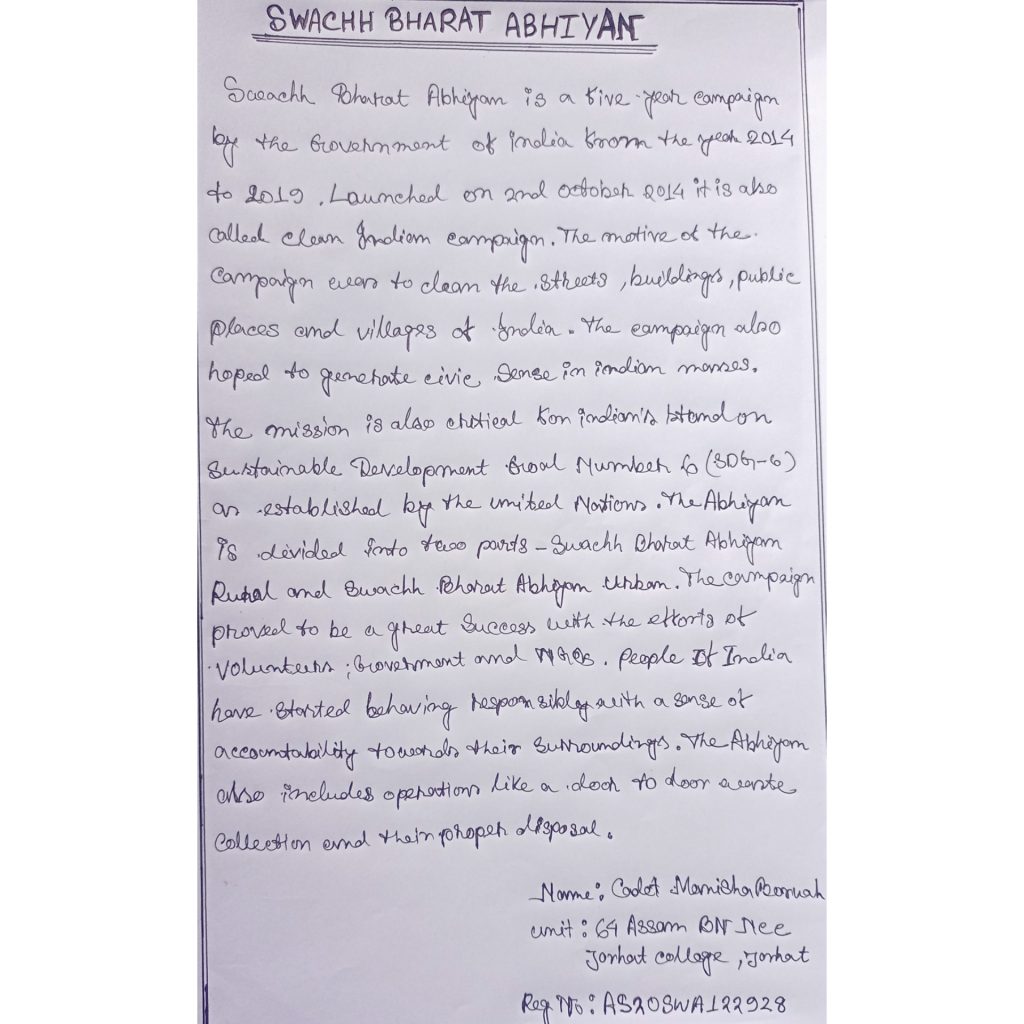 SWACHH BHARAT ABHIYAN
Swachh Bharat Abhiyan is a five-year campaign
by the Government of india from the year 2014
to 2019. Launched on 2nd october 2014 it is also
called clean Indian campaign. The motive of the
Campaign was to clean the streets, buildings, public
places and villages of India. The campaign also
hoped to generate civic sense in indian masses.
The mission is also critical for indian's stand on
Sustainable Development Goal Number 6 (SDG-6)
as established by the united Nations. The Abhiyan
is divided into two parts - Swachh Bharat Abhiyan
Rural and Swachh Bharat Abhiyan Urban. The campaign
proved to be a great success with the efforts of
volunteers, Government and NGOs. People of India
have started behaving responsibly with a sense of
accountability towards their surroundings. The Abhiyan
also includes operations like a door to door waste
collection and their proper disposal.
Name: Cadet Manisha Boruah
unit: 64 Assam BN Ncc
Jorhat college, Jorhat
Reg No: AS20SWA122928